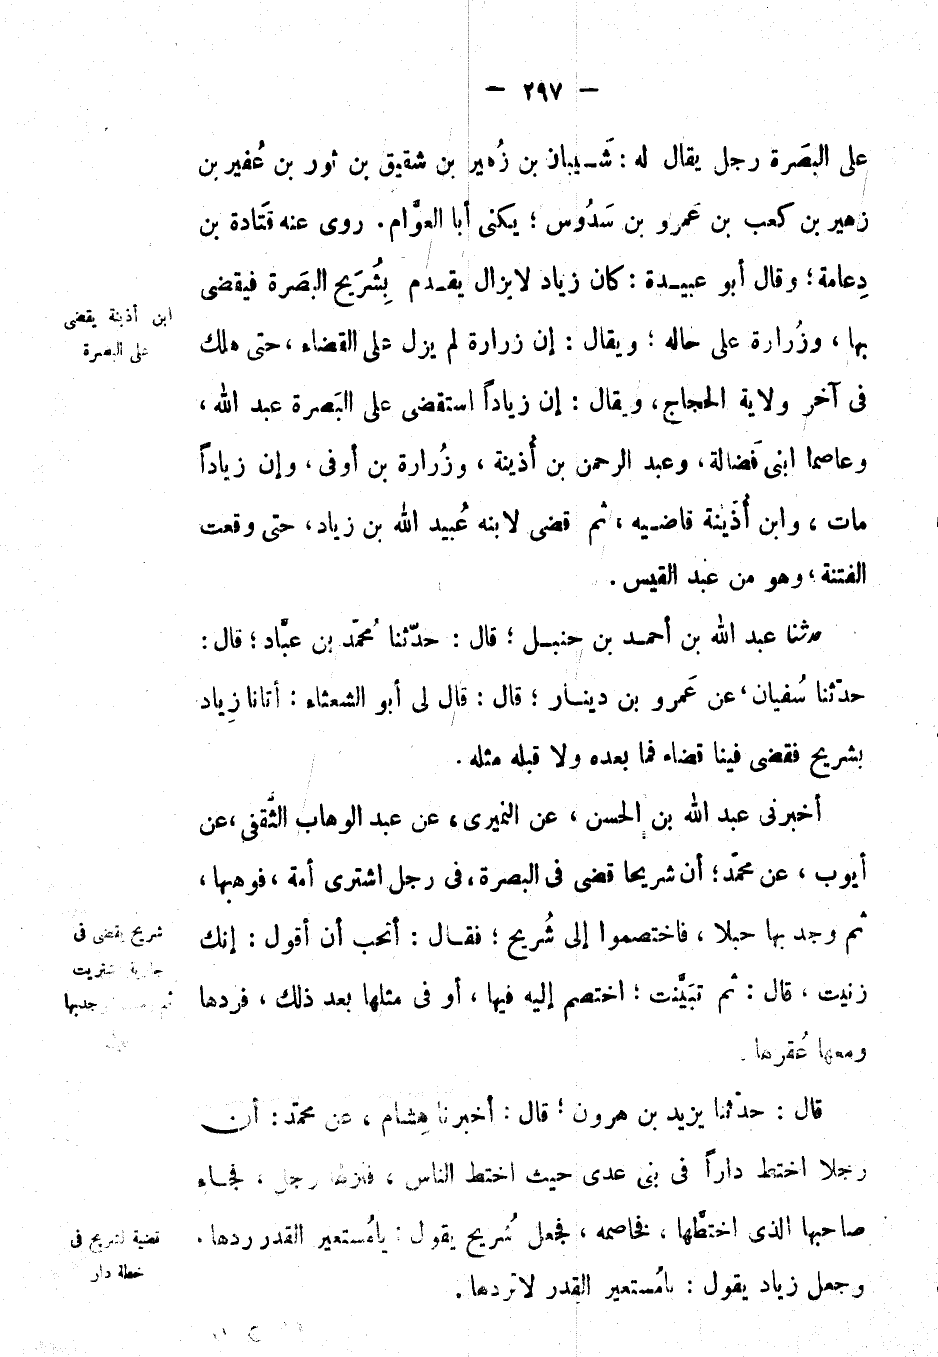 — ٢٩٧ —
على البصَرة رجل يقال له : شَيبان بن زُهير بن شقيق بن ثور بن عُفير بن
زهير بن كعب بن عَمرو بن سَدُوس ؛ يكنى أبا العوَّام . روى عنه قتَادة بن
دِعامة ؛ وقال أبو عبيدة : كان زياد لايزال يقدم بِشُرَيح البصَرة فيقضى
بها ، وزُرارة على حاله ؛ ويقال : إن زرارة لم يزل على القضاء ، حتى هلك
فى آخر ولاية الحجاج ، ويقال : إن زياداً استقضى على البَصرة عبد الله ،
وعاصما ابنى فَضالة ، وعبد الرحمن بن أُذينة ، وزُرارة بن أوفى ، وإن زياداً
مات ، وابن أُذَينة قاضيه ، ثم قضى لابنه عُبيد الله بن زياد ، حتى وقعت
الفتنة ؛ وهو من عبد القيس .
حدثنا عبد الله بن أحمد بن حنبل ؛ قال : حدّثنا مُحمّد بن عبَّاد ؛ قال :
حدّثنا سُفيان ، عن عَمرو بن دينار ؛ قال : قال لى أبو الشعثاء : أتانا زِياد
بشريح فقضى فينا قضاء فما بعده ولا قبله مثله .
أخبرنى عبد الله بن الحسن ، عن النميرى ، عن عبد الوهاب الثَّقفى ، عن
أيوب ، عن محمّد ؛ أن شريحا قضى فى البصرة ، فى رجل اشترى أمة ، فوهبها ،
ثم وجد بها حبلا ، فاختصموا إلى شُريح ؛ فقال : أتحب أن أقول : إنك
زنيت ، قال : ثم تبَيَّنت ؛ اختصم إليه فيها ، أو فى مثلها بعد ذلك ، فردها
ومعها عُقرها .
قال : حدّثنا يزيد بن هرون ؛ قال : أخبرنا هِشام ، عن محمّد : أن
رجلا اختط داراً فى بنى عدى حيث اختط الناس ، رجل ، فجاء
صاحبها الذى اختطَّها ، فخاصمه ، فجعل شُريح يقول : يامُستعير القدر ردها .
وجعل زياد يقول : يامُستعير القدر لاتردها .
ابن أذينة يقضى
على البصرة
شريح يقضى فى
قضية لشريح فى
خطة دار